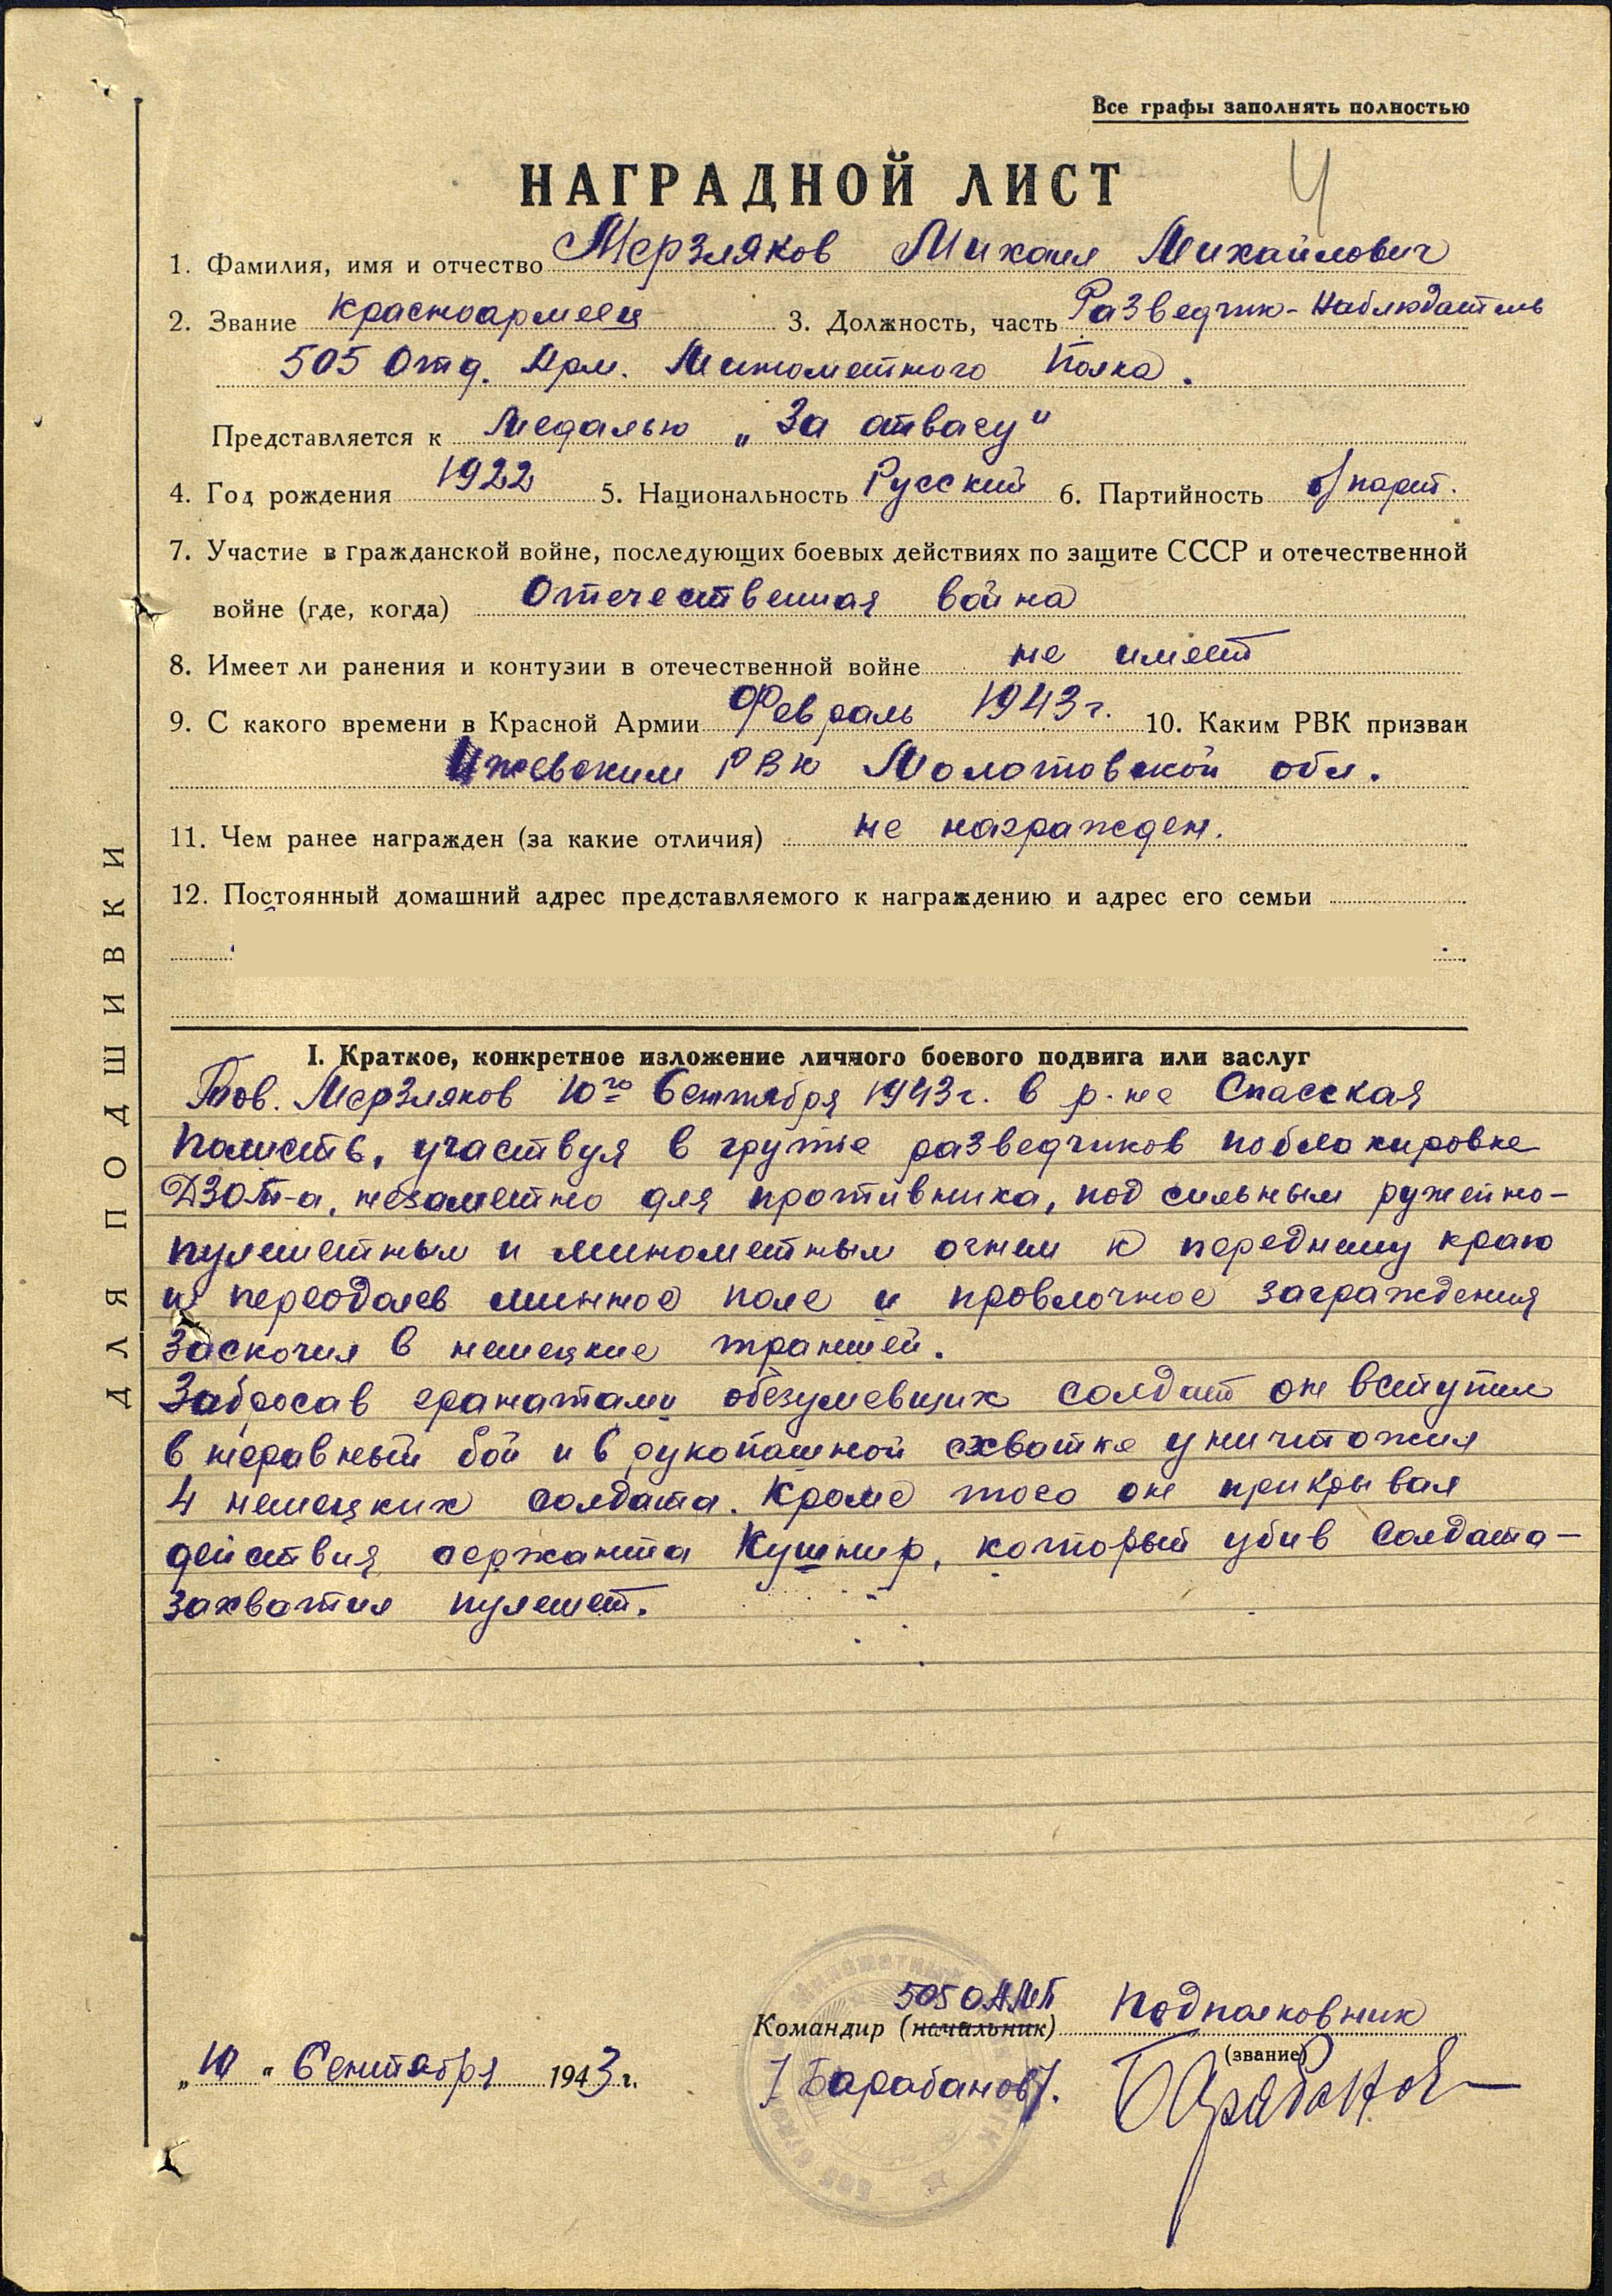 Все графы заполнять полностью
4
НАГРАДНОЙ ЛИСТ
1. Фамилия, имя и отчество Мерзляков Михаил Михайлович
2. Звание красноармеец 3. Должность, часть Разведчик-наблюдатель
505 Отд. Арм. Минометного Полка.
Представляется к медалью „За отвагу"
4. Год рождения 1922 5. Национальность Русский 6. Партийность б/парт.
7. Участие в гражданской войне, последующих боевых действиях по защите СССР и отечественной
войне (где, когда) Отечественная война
8. Имеет ли ранения и контузии в отечественной войне не имеет
9. С какого времени в Красной Армии Февраль 1943 г. 10. Каким РВК призван
Ижевским РВК Молотовской обл.
11. Чем ранее награжден (за какие отличия) не награжден.
12. Постоянный домашний адрес представляемого к награждению и адрес его семьи
ДЛЯ ПОДШИВКИ
I. Краткое, конкретное изложение личного боевого подвига или заслуг
Тов. Мерзляков 10го Сентября 1943 г. в р-не Спасская
Полисть, участвуя в группе разведчиков поблокировке
ДЗОТ-а, незаметно для противника, под сильным ружейно-
пулеметным и минометным огнем к переднему краю
и переодолев минное поле и проволочное заграждения
заскочил в немецкие траншей.
Забросав гранатами обезумевщих солдат он вступил
в неравный бой и в рукопашной схватке уничтожил
4 немецких солдата. Кроме того он прикрывал
действия сержанта Кушнир, который убив солдата-
захватил пулемет.
505 ОАМП
Командир (начальник) Подполковник
(звание)
„10" Сентября 1943 г.
/Барабанов/. Барабанов